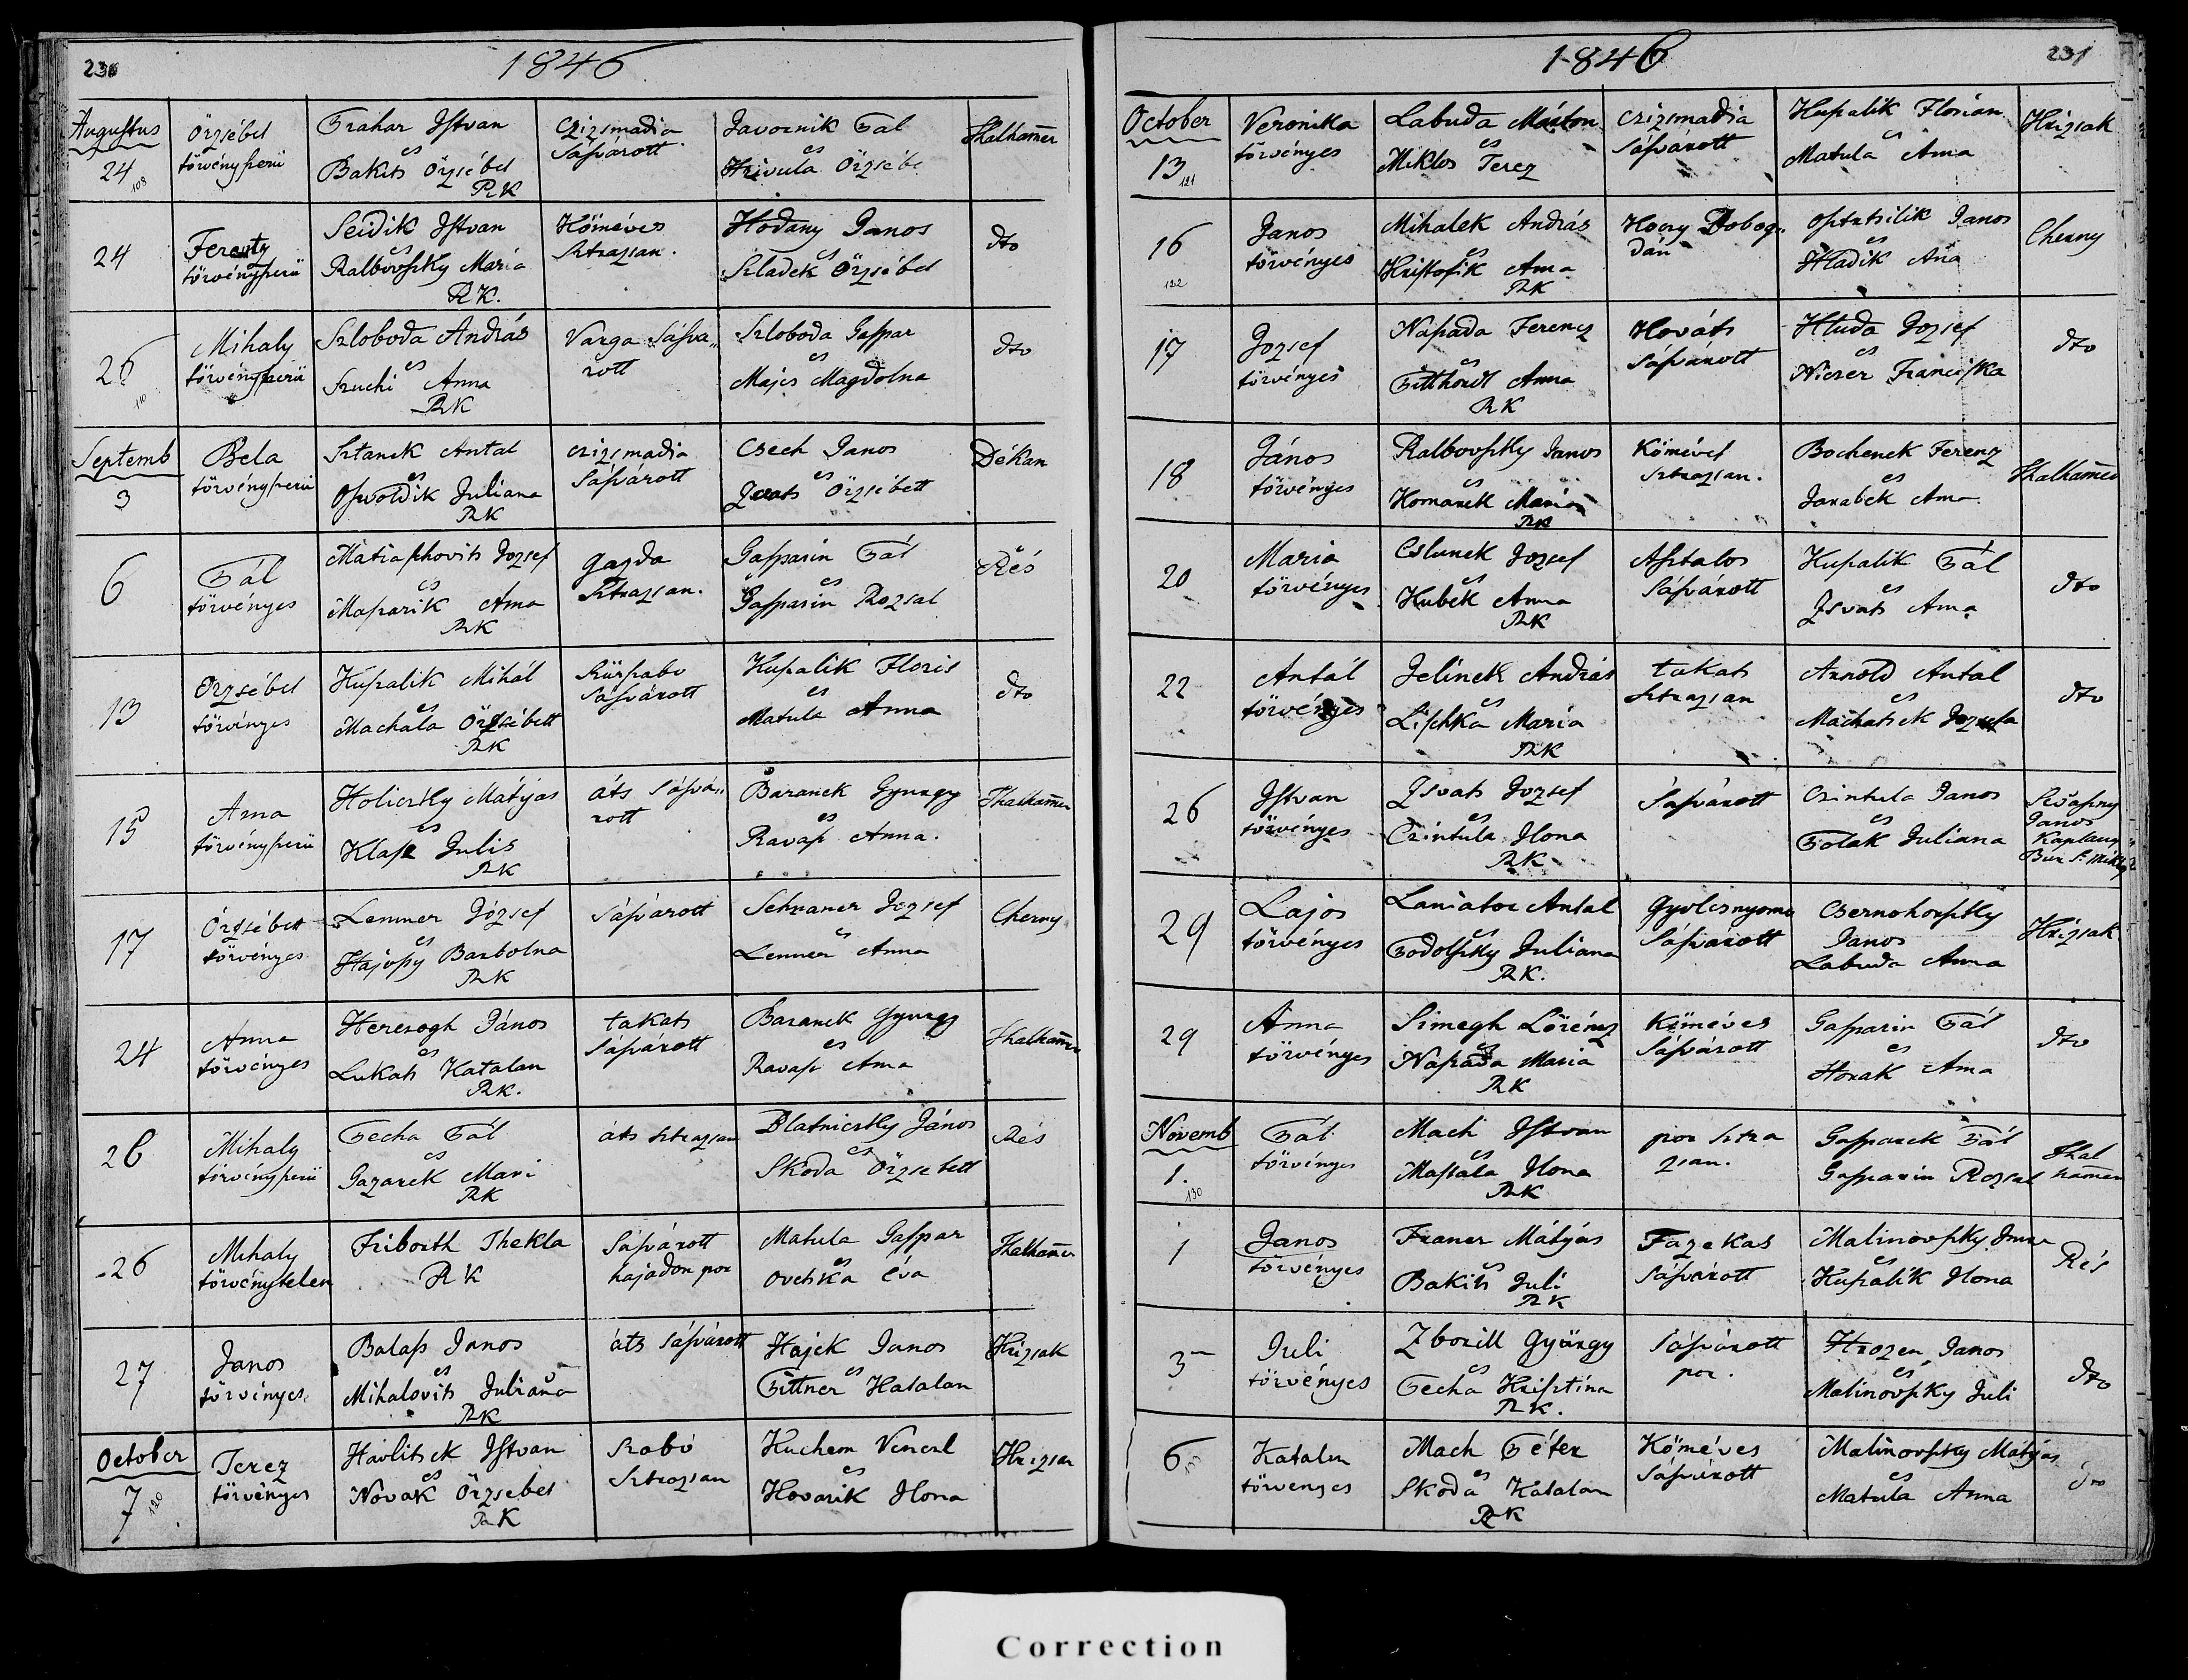 230
1846
Augustus
24
108
Örzsébet
törvényszerü
Trahar Istvan
és
Bakits Örzsébet
RK
czizsmadia
Sásvárott
Javornik Pál
és
Hrivula Örzsébe
Thalhamer
24
Ferentz
törvényszerü
Seidik Istvan
és
Ralbovszky Maria
RK.
Köméves
Strazsan.
Hodany Janos
és
Szladek Örzsébet
dto
26
110
Mihaly
törvényszerü
Szloboda András
és
Szuchi Anna
RK
Varga Sásva„
rott
Szloboda Gaspar
és
Majer Magdolna
dto
Septemb
3
Bela
törvényszerü
Sztanek Antal
és
Oswoldik Juliana
RK
czizsmadia
Sásvárott
Csech Janos
és
Örzsébett
Dékan
6
Pál
törvényes
Matiaschovits Jozsef
és
Maszarik Anna
RK
gazda
Strazsan.
Gasparin Pál
és
Gasparin Rozsal
Rés
13
Örzsébet
törvényes
Kupalik Mihál
és
Machala Örzsébett
RK
Szürszabo
Sásvárott
Kupalik Floris
és
Matula Anna
dto
15
Anna
törvényszerü
Holiczky Mátyas
és
Klass Julis
RK
áts Sásvá„
rott
Baranek Gyurgy
és
Ravasz Anna.
Thalhamer
17
Örzsébett
törvényes
Lenner József
és
Hajossy Barbolna
RK
Sásvárott
Schraner Jozsef
és
Lenner Anna
Cherny
24
Anna
törvényes
Herczogh János
és
Lukats Katalan
RK.
takats
Sásvárott
Baranek Gyurgy
és
Ravasz Anna
Thalhamer
26
Mihaly
törvényszerü
Pecha Pál
és
Gazarek Mari
RK
áts Strazsan
Blatniczky János
és
Skoda Örzsebett
Rés
26
Mihaly
törvénytelen
Friborth Thekla
RK
Sásvárott
hajadon por
Matula Gaspar
Ovetska Éva
Thalhamer
27
Janos
törvényes.
Balass Janos
és
Mihalovits Juliana
RK
áts Sásvárott
Hajek Janos
és
Pittner Katalan
Hrizsak
October
7
120
Terez
törvényes
Havlitsek Istvan
és
Novak Örzsebet
RK
Szabó
Strazsan
Kuchem Venczl
és
Hovarik Ilona
Hrizsak
1846
231
October
13
121
Veronika
törvényes
Labuda Márton
és
Miklos Terez
czizsmadia
Sásvárott
Kupalik Florian
és
Matula Anna
Hrizsak
16
122
Janos
törvényes
Mihalek András
és
Kristofik Anna
RK
Hoczy Dobog.
dán
Janos
és
Hladik Ana
Cherny
17
Jozsef
törvényes
Naszada Ferencz
és
Pitthordt Anna
RK
Kováts
Sásvárott
Hluda Jozsef
és
Niczer Franciska
dto
18
János
törvényes
Ralbovszky Janos
és
Komarek Maria
RK
Kömévet
Strazsan.
Bochenek Ferenz
és
Jarabek Anna
Thalhamer
20
Maria
törvényes
Cslunek Jozsef
és
Kubek Anna
RK
Asztalos
Sásvárott
Kupalik Pál
és
Izvats Anna
dto
22
Antál
törvényes
Jelinek András
és
Lischka Maria
RK
takats
Strazsan
Arnold Antal
és
Machatsek Jozefa
dto
26
Istvan
törvényes
Izvats Jozsef
és
Czintula Ilona
RK
Sásvárott
Czintula Janos
és
Polak Juliana
Janos
Kaplany
Bur St Miklos
29
Lajos
törvényes
Laniator Antal
és
Podolszky Juliana
RK.
Gyolcsnyomo
Sásvárott
Csernohorszky
Janos
Labuda Anna
Hrizsak
29
Anna
törvényes
Simegh Lörincz
és
Naszada Maria
RK
Köméves
Sásvárott
Gasparin Pál
és
Horak Anna
dto
Novemb
1.
130
Pál
törvényes
Mach Istvan
és
Massala Ilona
RK
por Stra
zsan.
Gasparek Pál
Gasparin Rozsal
Thal
hamer
1
Janos
törvényes
Franer Mátyás
és
Bakits Juli
RK
Fazekas
Sásvárott
Malinovszky Imre
és
Kupalik Ilona
Rés
3
Juli
törvényes
Zborill György
és
Pecha Krisztina
RK.
Sásvárott
por.
Hrozen Janos
és
Malinovszky Juli
dto
6
133
Katalin
törvenyes
Mach Péter
és
Skoda Katalan
RK
Köméves
Sásvárott
Malinovszky Mátyás
és
Matula Anna
dto
Correction